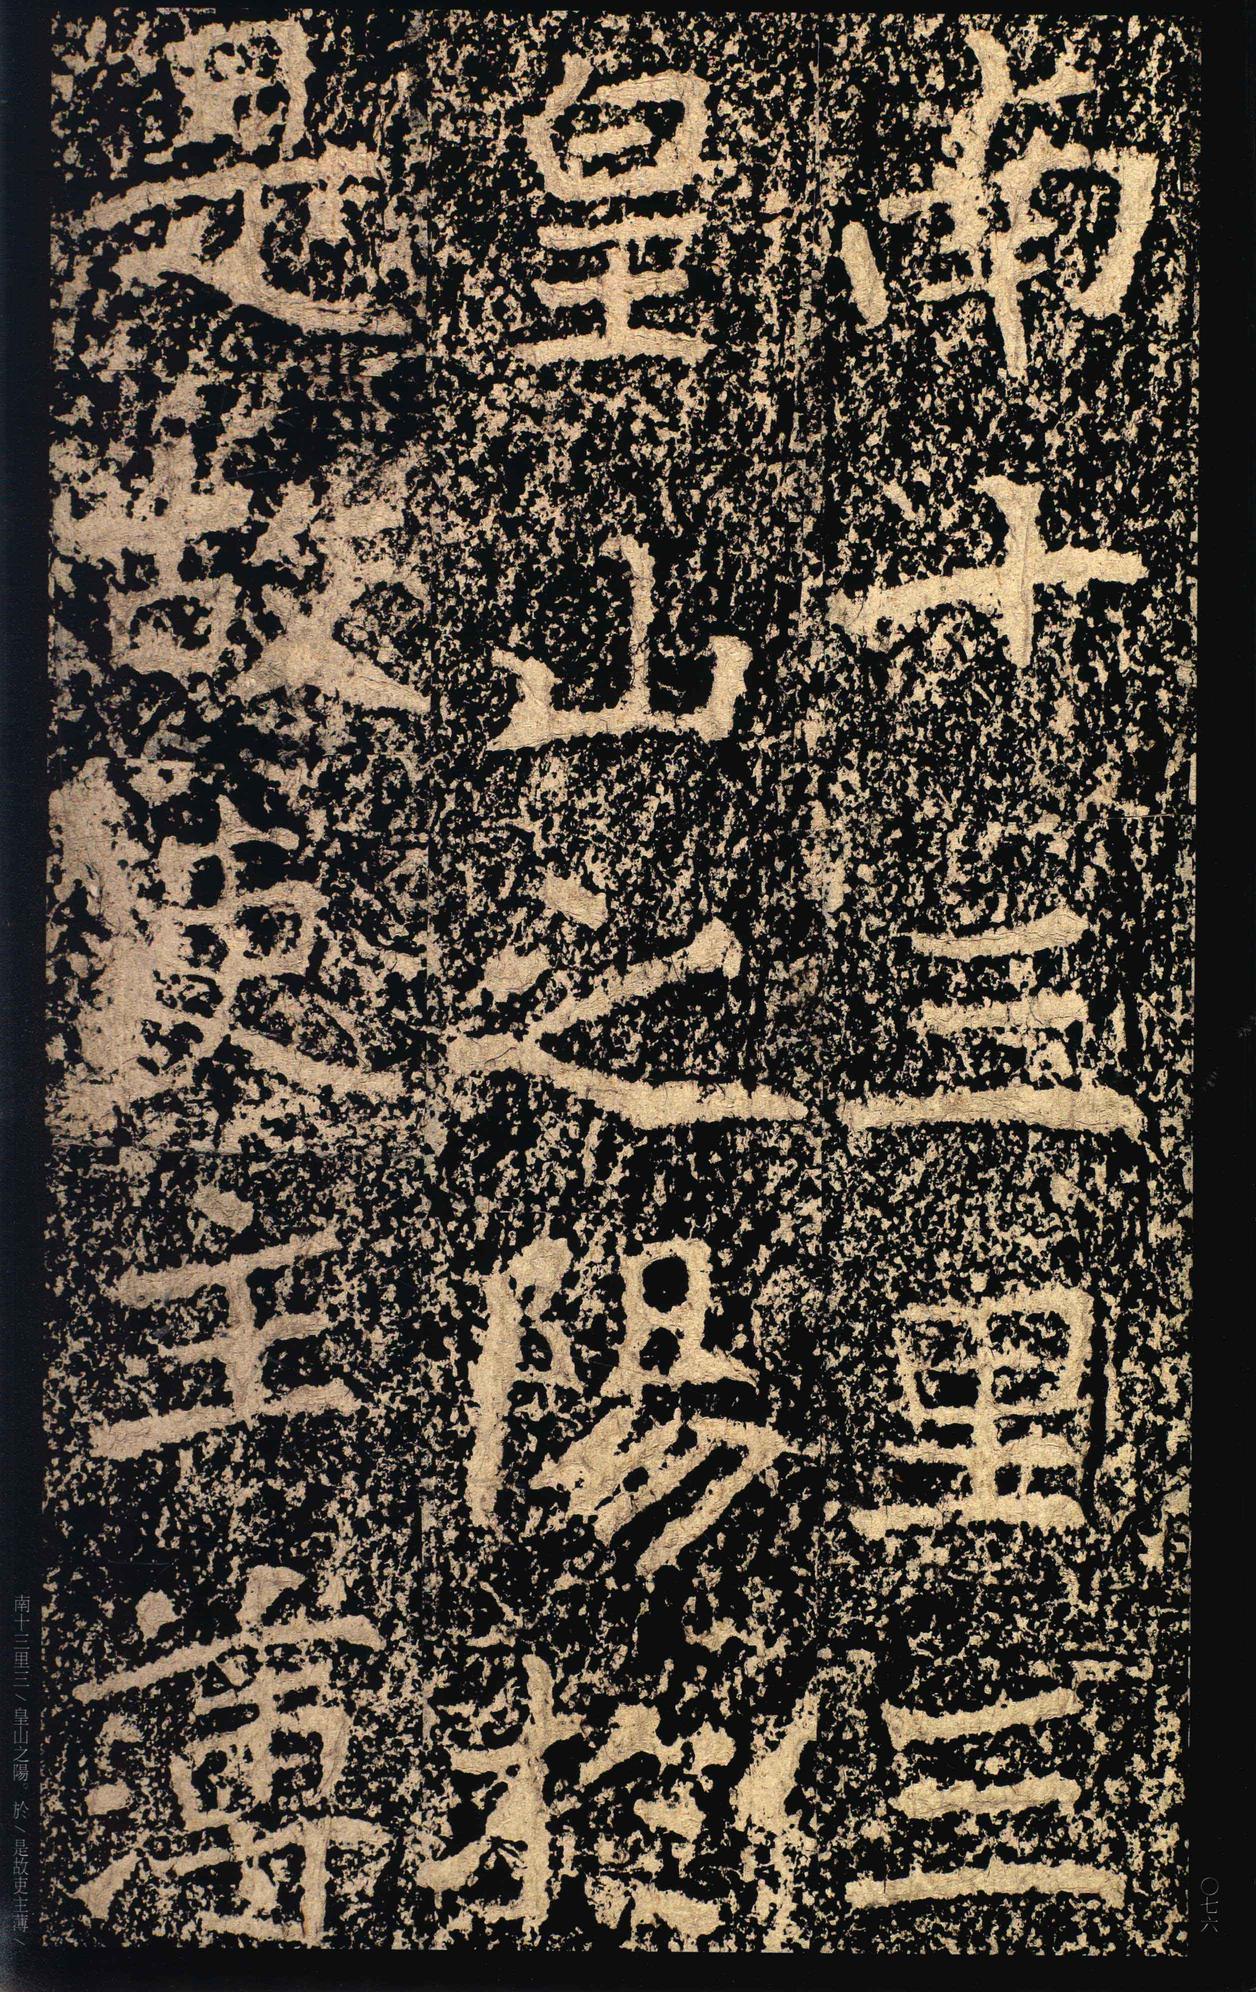 南十三里三
皇山之陽於
是故吏主薄
南十三里三／皇山之陽。於／是故吏主薄／
〇七六